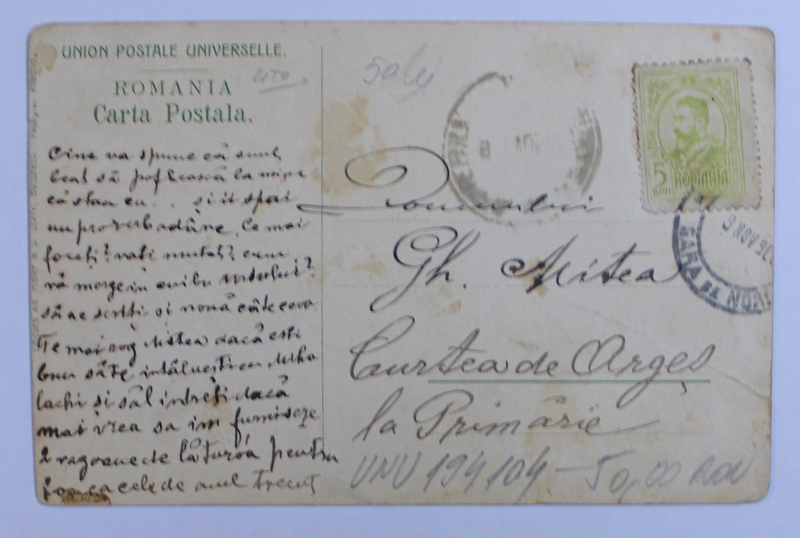 UNION POSTALE UNIVERSELLE.
ROMANIA
Carta Postala.
Cine va spune că sunt
beat să poftească la mine
că stau eu .. și îi spui
un proverb adânc. Ce mai
faceți? v'ați mutat? cum
vă merge în cuibu ursului?
să ne scrieți și nouă câte ceva
Te mai rog Mitea dacă ești
bun să te întâlnești cu Miha
lachi și să'l întrebi dacă
mai vrea sa îm furniseze
2 vagoane de
pentru
ca cele de anul trecut
50 lei
5 BANI ROMANIA
9 NOV 90
GARA DE NORD
Domnului
Gh. Mitea
Curtea de Argeș
la Primărie
VNV 194104 – 50,00 RON